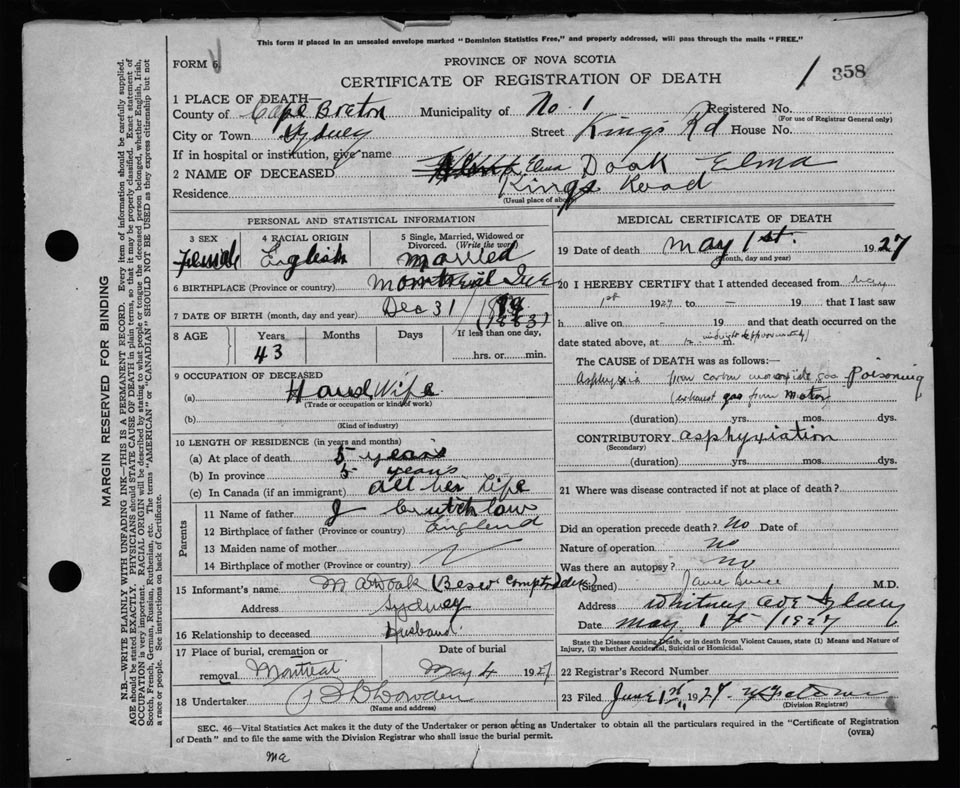 This form if placed in an unsealed envelope marked "Dominion Statistics Free," and properly addressed, will pass through the mails "FREE."
FORM 6
PROVINCE OF NOVA SCOTIA
CERTIFICATE OF REGISTRATION OF DEATH
1 358
1 PLACE OF DEATH—
County of Cape Breton Municipality of No. 1 Registered No.
(For use of Registrar General only)
City or Town Sydney Street Kings Rd House No.
If in hospital or institution, give name
2 NAME OF DECEASED Elma Doak Elma
Residence Kings Road
(Usual place of abode)
PERSONAL AND STATISTICAL INFORMATION
3 SEX 4 RACIAL ORIGIN 5 Single, Married, Widowed or Divorced. (Write the word)
Female English Married
6 BIRTHPLACE (Province or country) Montreal Que
7 DATE OF BIRTH (month, day and year) Dec 31
(1883)
8 AGE Years Months Days If less than one day,
43 hrs. or min.
9 OCCUPATION OF DECEASED
(a) House Wife
(Trade or occupation or kind of work)
(b)
(Kind of industry)
10 LENGTH OF RESIDENCE (in years and months)
(a) At place of death 5 years
(b) In province 5 years
(c) In Canada (if an immigrant) all her life
Parents
11 Name of father J
12 Birthplace of father (Province or country) England
13 Maiden name of mother
14 Birthplace of mother (Province or country)
15 Informant's name M A Doak
Address Sydney
16 Relationship to deceased Husband
17 Place of burial, cremation or removal Montreal Date of burial May 4 1927
18 Undertaker
(Name and address)
MEDICAL CERTIFICATE OF DEATH
19 Date of death May 1st. 1927
(Month, day and year)
20 I HEREBY CERTIFY that I attended deceased from May
1st 1927 to — 19 that I last saw
h alive on — 19 and that death occurred on the
date stated above, at 12 m
midnight (approximately)
The CAUSE OF DEATH was as follows:—
Asphyxia from carbon monoxide gas Poisoning
(exhaust gas from Motor)
(duration) yrs. mos. dys.
CONTRIBUTORY asphyxiation
(Secondary)
(duration) yrs. mos. dys.
21 Where was disease contracted if not at place of death?
Did an operation precede death? No Date of
Nature of operation no
Was there an autopsy? no
(Signed) M.D.
Address Whitney Ave Sydney
Date May 1st 1927
State the Disease causing Death, or in death from Violent Causes, state (1) Means and Nature of Injury, (2) whether Accidental, Suicidal or Homicidal.
22 Registrar's Record Number
23 Filed June 1927
(Division Registrar)
SEC. 46—Vital Statistics Act makes it the duty of the Undertaker or person acting as Undertaker to obtain all the particulars required in the "Certificate of Registration
of Death" and to file the same with the Division Registrar who shall issue the burial permit.
(OVER)
MARGIN RESERVED FOR BINDING
N.B.—WRITE PLAINLY WITH UNFADING INK—THIS IS A PERMANENT RECORD. Every item of information should be carefully supplied.
AGE should be stated EXACTLY. PHYSICIANS should STATE CAUSE OF DEATH in plain terms, so that it may be properly classified. Exact statement of
OCCUPATION is very important. RACIAL ORIGIN will be described by stating to what people or tongue the deceased person belonged, whether English, Irish,
Scotch, French, German, Russian, Ruthenian, etc. The terms "AMERICAN" or "CANADIAN" SHOULD NOT BE USED as they express citizenship but not
a race or people. See instructions on back of Certificate.